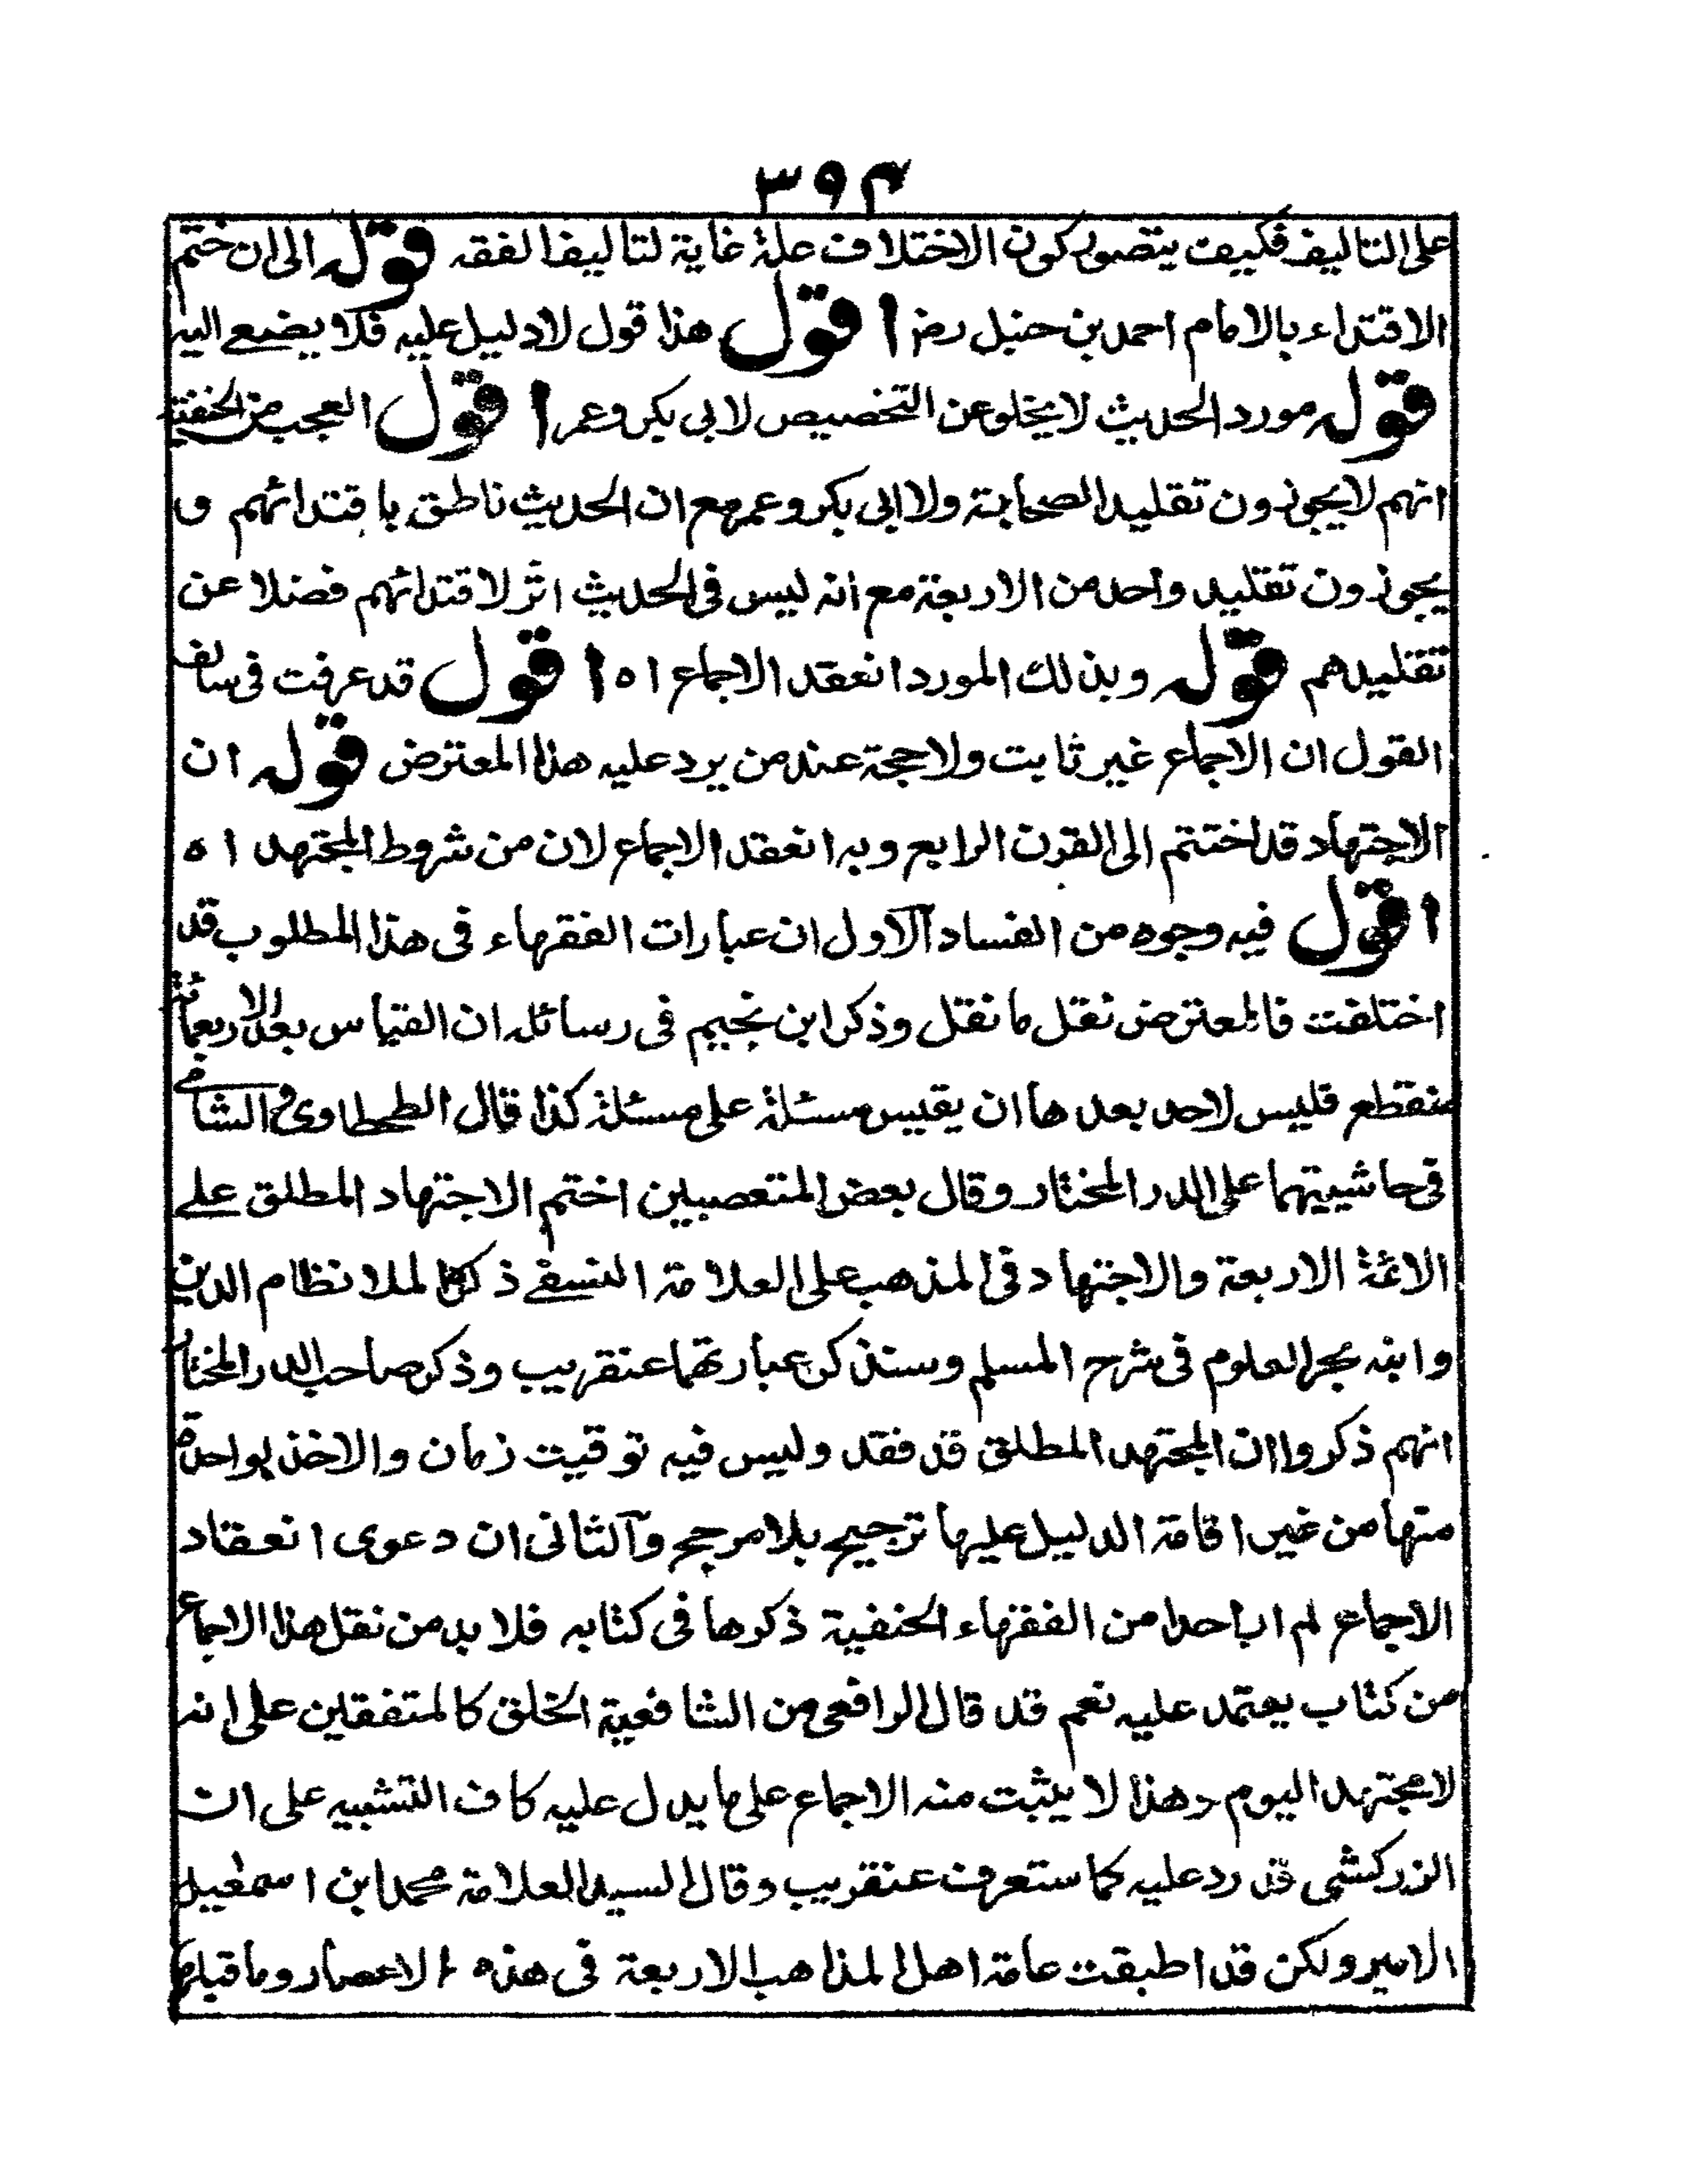 ٣٩٤
على التاليف فكيف يتصور كون الاختلاف علة غاية لتاليف الفقه قوله الى ان ختم
الاقتداء بالامام احمد بن حنبل رض اقول هذا قول لا دليل عليه فلا يضع اليه
قوله مورد الحديث لا يخلو عن التخصيص لابى بكر وعمر اقول العجب من الحنفية
انهم لا يجوزون تقليد الصحابة ولا ابى بكر وعمر مع ان الحديث ناطق باقتدائهم و
يجوزون تقليد واحد من الاربعة مع انه ليس فى الحديث اثر لاقتدائهم فضلا عن
تقليدهم قوله وبذلك المورد انعقد الاجماع اه اقول قد عرفت فى سالف
القول ان الاجماع غير ثابت ولا حجة عند من يرد عليه هذا المعترض قوله ان
الاجتهاد قد اختتم الى القرن الرابع وبه انعقد الاجماع لان من شروط المجتهد اه
اقول فيه وجوه من الفساد الاول ان عبارات الفقهاء فى هذا المطلوب قد
اختلفت فالمعترض نقل ما نقل وذكر ابن نجيم فى رسائله ان القياس بعد الاربعمائة
منقطع فليس لاحد بعدها ان يقيس مسئلة على مسئلة كذا قال الطحطاوى والشامى
فى حاشيتيهما على الدر المختار وقال بعض المتعصبين اختم الاجتهاد المطلق على
الائمة الاربعة والاجتهاد فى المذهب على العلامة النسفى ذكره الملا نظام الدين
وابنه بحر العلوم فى شرح المسلم وسنذكر عبارتهما عنقريب وذكر صاحب الدر المختار
انهم ذكروا ان المجتهد المطلق قد فقد وليس فيه توقيت زمان والاخذ بواحدة
منها من غير اقامة الدليل عليها ترجيح بلا مرجح والثانى ان دعوى انعقاد
الاجماع لم ار احدا من الفقهاء الحنفية ذكرها فى كتابه فلا بد من نقل هذا الاجماع
من كتاب يعتمد عليه نعم قد قال الرافعى من الشافعية الخلق كالمتفقين على انه
لا مجتهد اليوم وهذا لا يثبت منه الاجماع على ما يدل عليه كاف التشبيه على ان
الزركشى قد رد عليه كما ستعرف عنقريب وقال السيد العلامة محمد ابن اسمعيل
الامير ولكن قد اطبقت عامة اهل المذاهب الاربعة فى هذه الاعصار وما قبلها